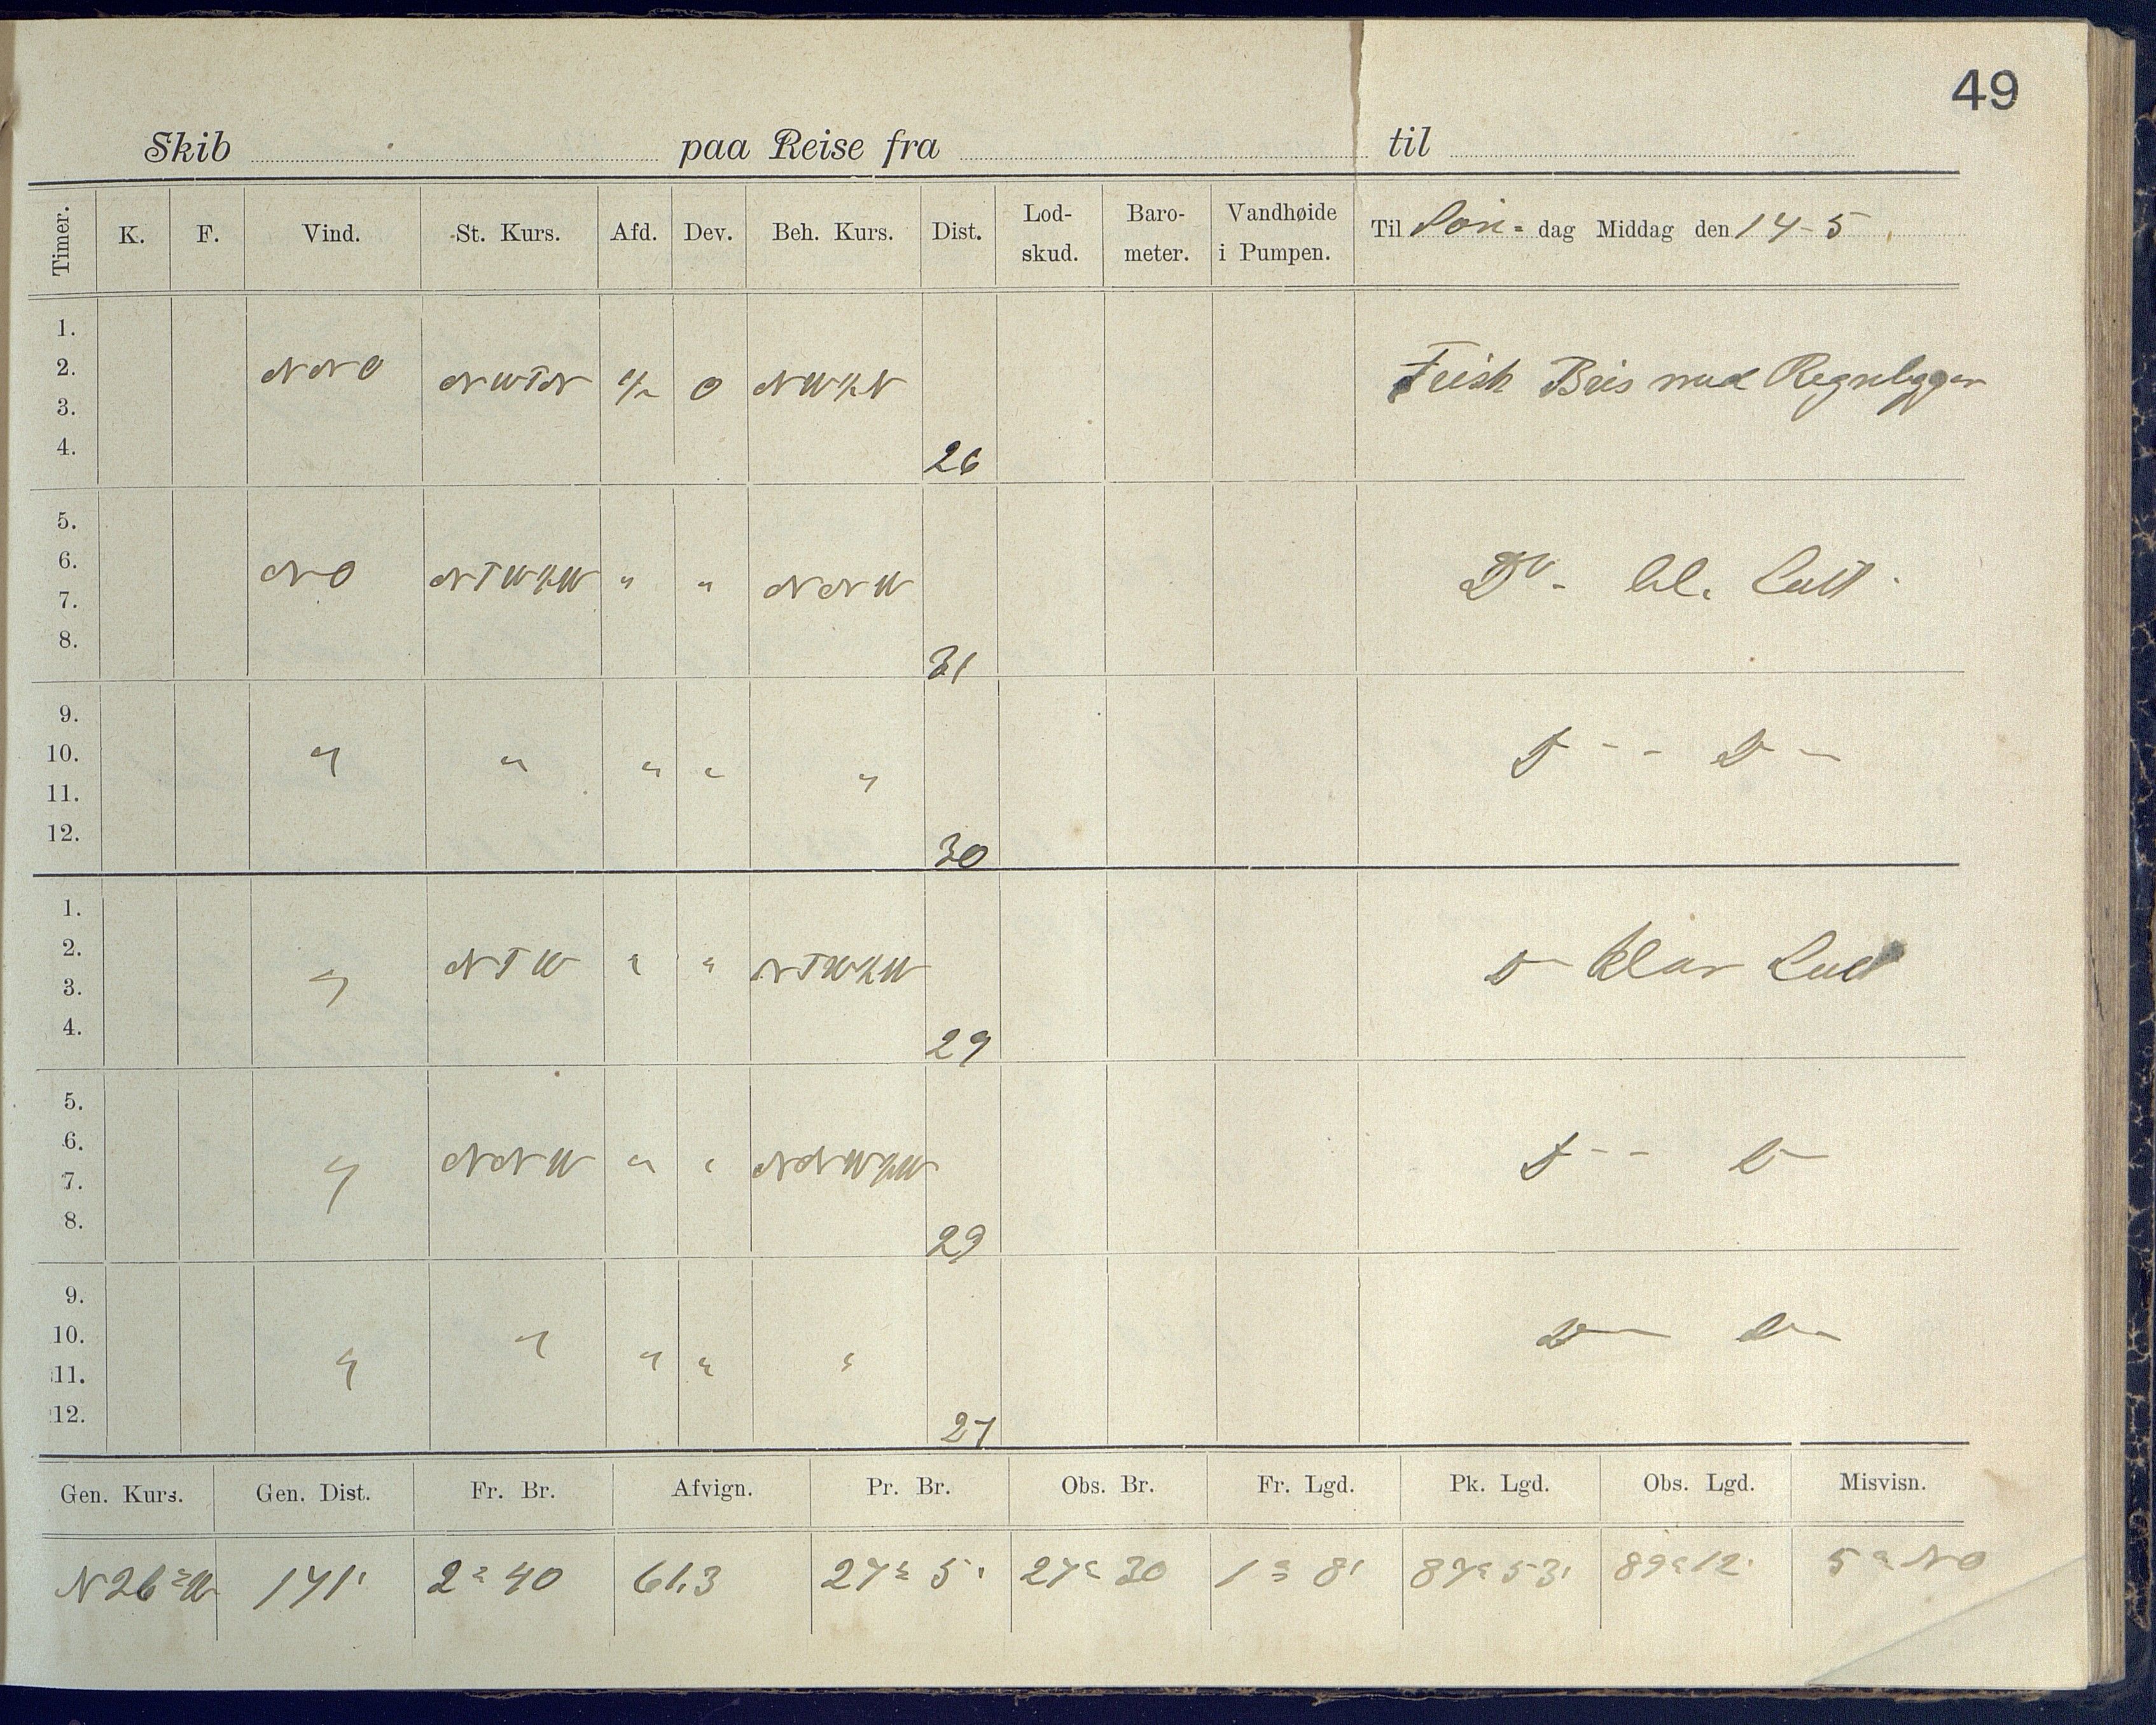 49
Skib paa Reise fra til
Timer. K. F. Vind. St. Kurs. Afd. Dev. Beh. Kurs. Dist. Lod-skud. Baro-meter. Vandhøide i Pumpen. Til Søn- dag Middag den 14-5
1.
2. NNO NWTN 1/2 0 NW1/2N Frisk Bris med Regnbyger
3.
4. 26
5.
6. NO NTW1/2W " " NNW Do - bl. Luft
7.
8. 31
9.
10. " " " " " D - - D -
11.
12. 30
1.
2. " NTW " " NTW1/2W D klar Luft
3.
4. 29
5.
6. " NNW " " NNW1/2W D - - D
7.
8. 29
9.
10. " " " " " D D
11.
12. 27
Gen. Kurs. Gen. Dist. Fr. Br. Afvign. Pr. Br. Obs. Br. Fr. Lgd. Pk. Lgd. Obs. Lgd. Misvisn.
N 26° W 141' 2° 40 61.3 27° 5' 27° 30 1° 8' 87° 53' 89° 12' 5° NO